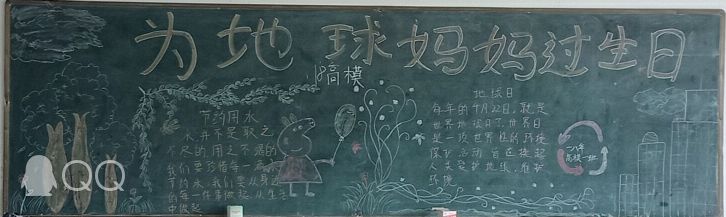 为地球妈妈过生日
小高模
节约用水
水并不是取之
不尽的用之不竭的
我们要珍惜每一滴水
节约水,我们要从身边
的每一件事做起,从生活
中做起
地球日
每年的4月22日,就是
世界地球日。世界日
是一项世界性的环境
保护活动
爱护地球,维护
环境
一八年
高模一班
QQ